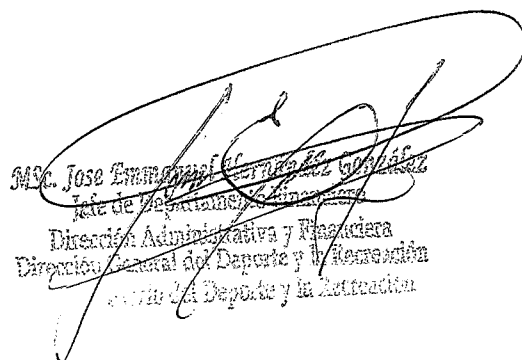 MSc. Jose Emmanuel Hernández González
Jefe de Departamento Financiero
Dirección Administrativa y Financiera
Dirección General del Deporte y la Recreación
del Deporte y la Recreación